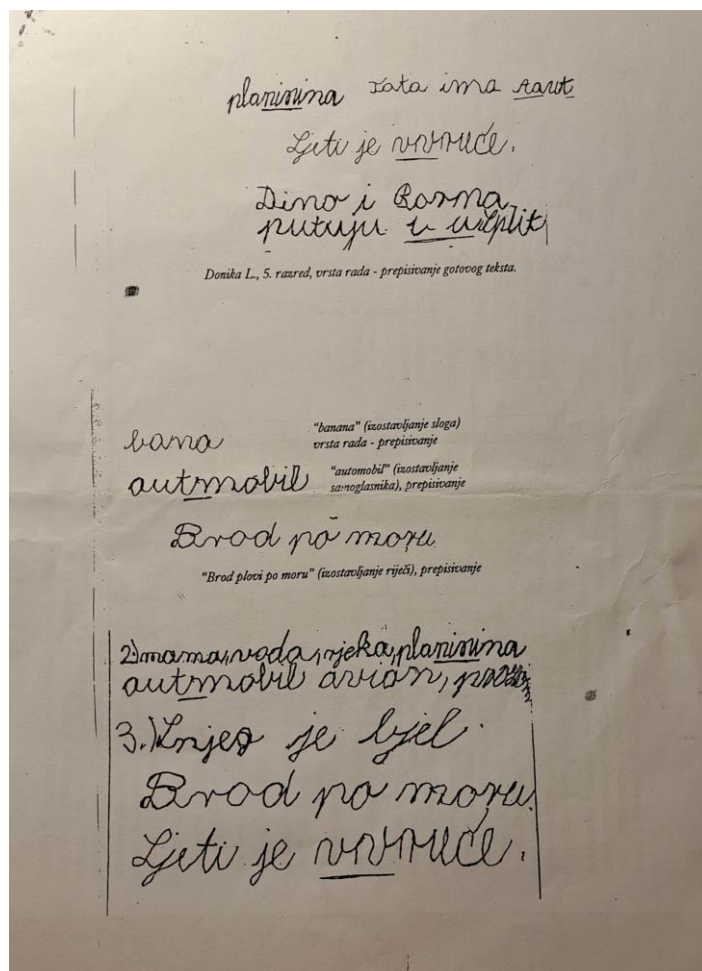 planinina Tata ima aaut
Ljeti je vrvruće.
Dino i Borna
putuju u uSplit
Donika L., 5. razred, vrsta rada - prepisivanje gotovog teksta.
bana
"banana" (izostavljanje sloga)
vrsta rada - prepisivanje
autmobil
"automobil" (izostavljanje
samoglasnika), prepisivanje
Brod po moru
"Brod plovi po moru" (izostavljanje riječi), prepisivanje
2.) mama, voda, rjeka, planinina
autmobil avion,
3.) Snjeg je bjel.
Brod po moru.
Ljeti je vrvruće.